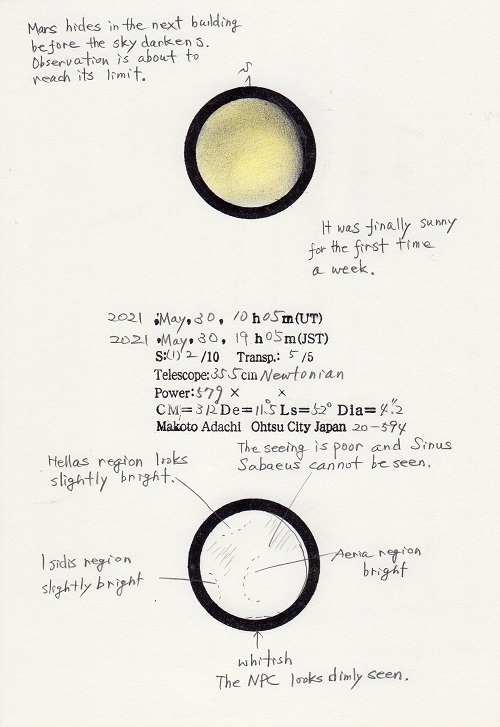 Mars hides in the next building
before the sky darkens.
Observation is about to
reach its limit.
S
It was finally sunny
for the first time
a week.
2021 ;May, 30, 10 h 05 m(UT)
2021 ;May, 30, 19 h 05 m(JST)
S:(1) 2 /10 Transp.: 5 /5
Telescope: 35.5 cm Newtonian
Power: 579 × ×
CM=312° De=11.5° Ls=52° Dia=4".2
Makoto Adachi Ohtsu City Japan 20-594
The seeing is poor and Sinus
Sabaeus cannot be seen.
Hellas region looks
slightly bright.
Isidis region
slightly bright
Aeria region
bright
whitish
The NPC looks dimly seen.